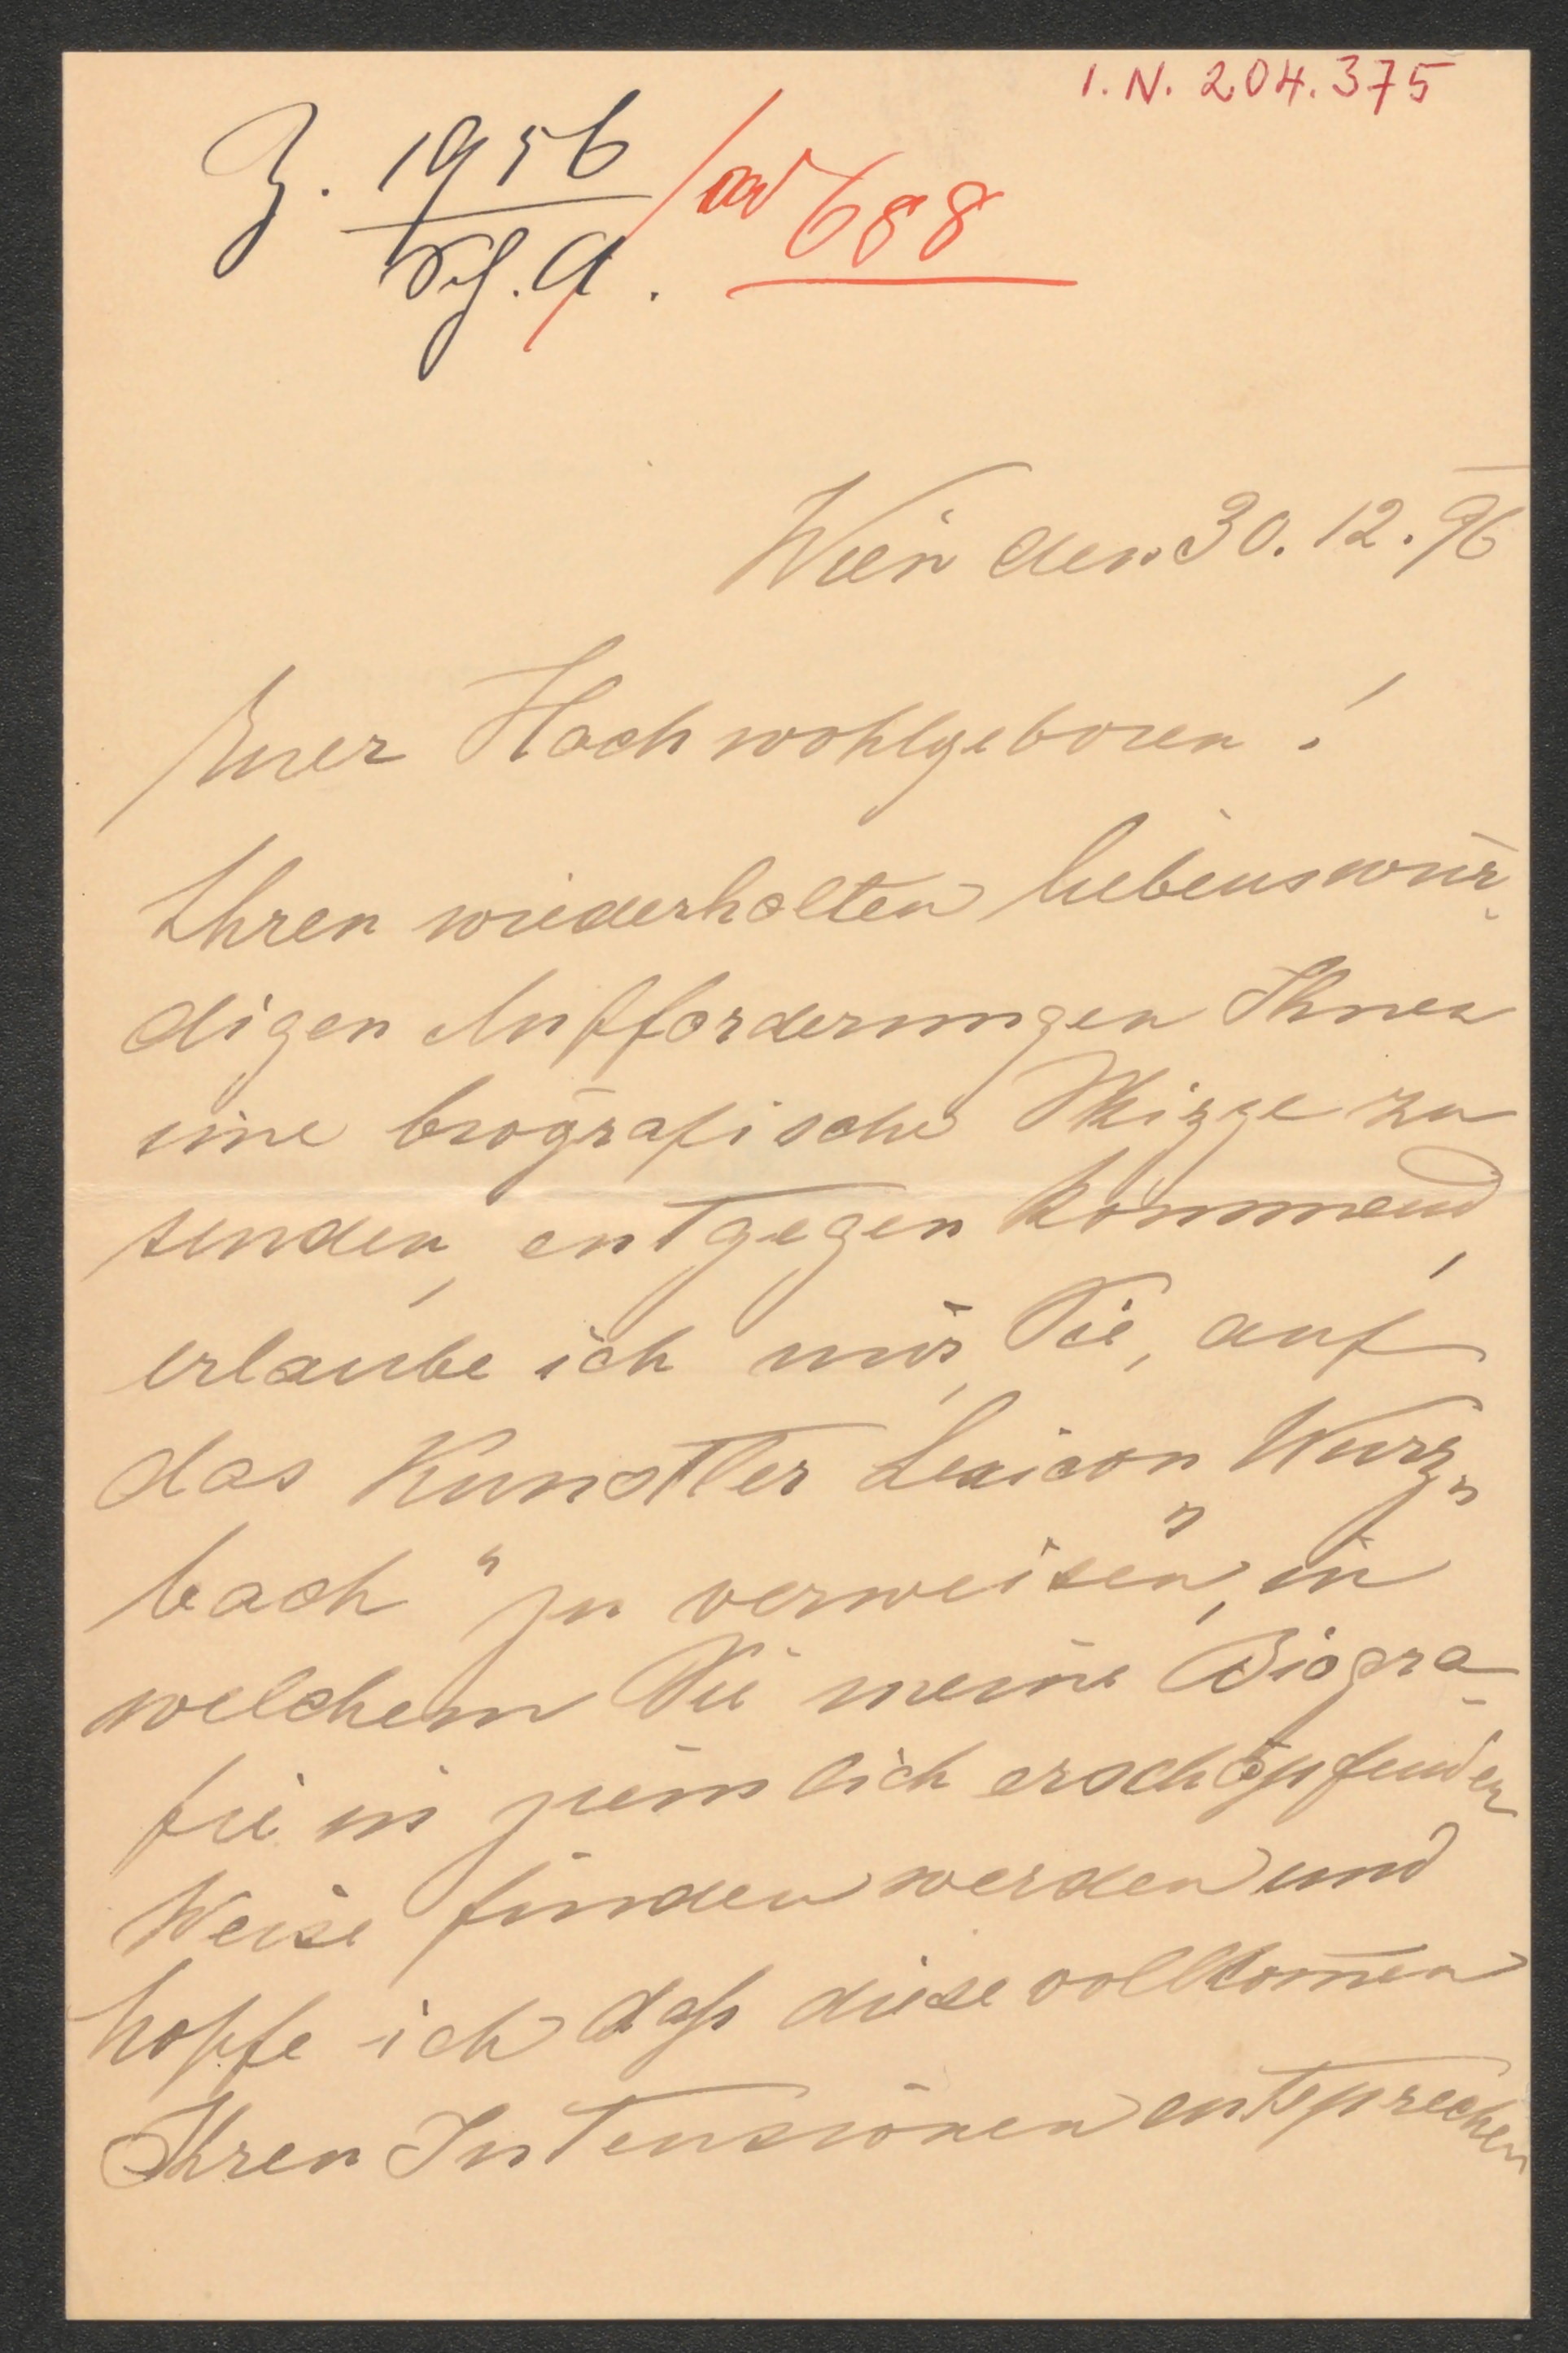 I. N. 204.375
Z. 1956 / ad 688
Sch. A.
Wien den 30. 12. 96
Euer Hochwohlgeboren!
Ihren wiederholten liebenswür-
digen Aufforderungen Ihnen
eine biografische Skizze zu
senden, entgegen kommend,
erlaube ich mir, Sie, auf
das Künstler Lexicon „Wurz„
bach" zu verweisen, in
welchem Sie meine Biogra-
fie in ziemlich erschöpfender
Weise finden werden und
hoffe ich daß diese vollkom̄en
Ihren Intensionen entsprechen